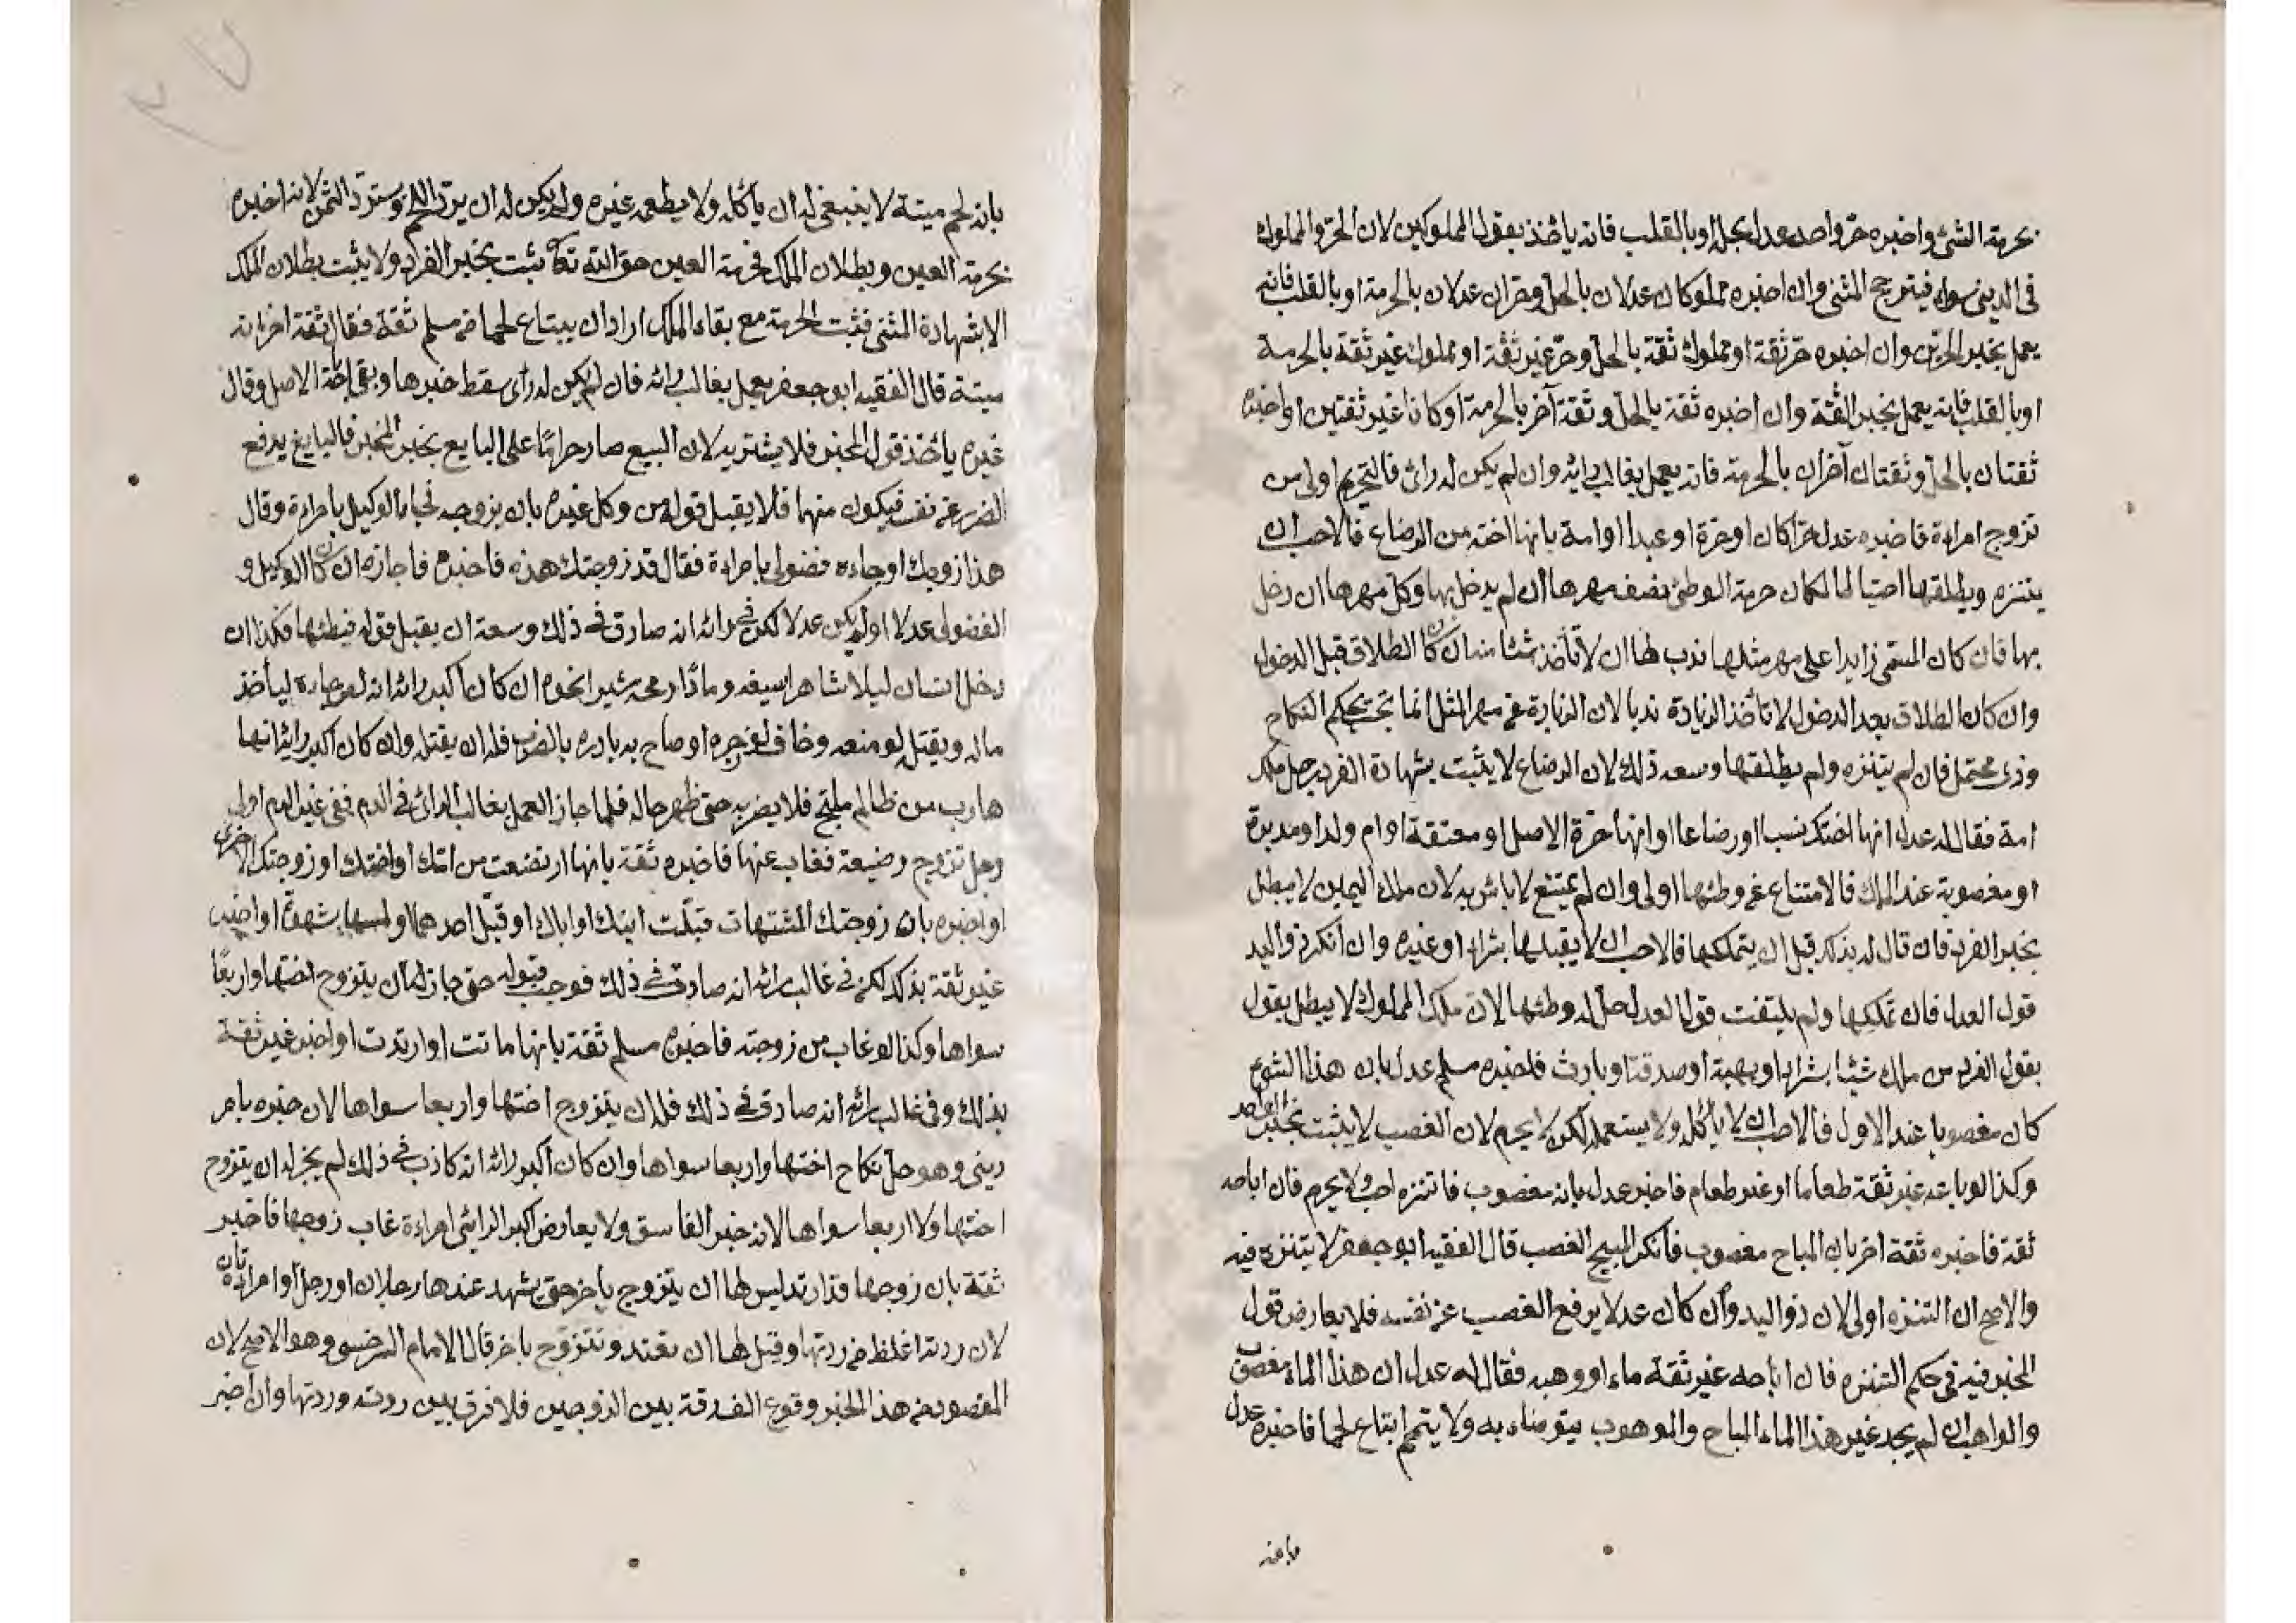 بحرمة الشئ واخبره حرّ واحد عدل بحله او بالقلب فانه يأخذ بقول المملوكين لان الحرّ والمملوك
فى الدينى سواء فيترجح المثنى وان اخبره مملوكان عدلان بالحلّ وحران عدلان بالحرمة او بالقلب فانه
يعمل بخبر الحرّين وان اخبره حرّ ثقة او مملوك ثقة بالحلّ وحرّ غير ثقة او مملوك غير ثقة بالحرمة
او بالقلب فانه يعمل بخبر الثقة وان اخبره ثقة بالحلّ وثقة آخر بالحرمة او كانا غير ثقتين او اخبره
ثقتان بالحلّ وثقتان آخران بالحرمة فانه يعمل بغالب رائه وان لم يكن له رائ فالتحريم اولى من
تزوج امراءة فاخبره عدل حرّا كان او حرة او عبدا او امة بانها اخته من الرضاع فالاحب ان
يتنزه ويطلقها احتيالما لمكان حرمة الوطئ بنصف مهرها ان لم يدخل بها وكل مهرها ان دخل
بها فان كان المسمّى زايدا على مهر مثلها ندب لها ان لا تأخذ شئا منه ان كان الطلاق قبل الدخول
وان كان الطلاق بعد الدخول لا تأخذ الزيادة ندبا لان الزيادة عن مهر المثل انما تجب بحكم النكاح
وذى محتمل فان لم يتنزه ولم يطلقها وسعه ذلك لان الرضاع لا يثبت بشهادة الفرد رجل ملك
امة فقال له عدل انها اختك نسبا او رضاعا او انها حرّة الاصل او معتقة او ام ولد او مدبرة
او مغصوبة عند الملك فالامتناع عن وطئها اولى وان لم يمتنع لا باس به لان ملك اليمين لا يبطل
بخبر الفرد فان قال له بذلك قبل ان يتملكها فالاحب ان لا يقبلها بشراء او غيره وان انكر ذو اليد
قول العدل فان تملكها ولم يلتفت قول العدل حل له وطئها لانّ ملك المملوك لا يبطل بقول
بقول الفرد من ملك شيئا بشراء او بهبة او صدقة او بارث فاخبره مسلم عدل بان هذا الشئ
كان مغصوبا عند الاول فالاحب ان لا يأكله ولا يستعمله لكن لا يحرم لان الغصب لا يثبت بخبر الواحد
وكذا لو باعه غير ثقة طعاما او غير طعام فاخبر عدل بانه مغصوب فالتنزه احب ولا يحرم فان اباحه
ثقة فاخبره ثقة اخر بان المباح مغصوب فانكر المبيح الغصب قال الفقيه ابو جعفر لا يتنزه فيه
والاصح ان التنزه اولى لان ذو اليد وان كان عدلا يرفع الغصب عن نفسه فلا يعارض قول
المخبر فيه فى حكم التنزه فان اباحه غير ثقة ماء او وهبه فقال له عدل ان هذا الماء مغصوب
والواهب ان لم يجد غير هذا الماء المباح والموهوب يتوضاء به ولا يتمم ابتاع لحما فاخبره عدل
بانه
بانه لحم ميتة لا ينبغى له ان يأكله ولا يطعمه غيره ولم يكن له ان يرد اللحم ويستردّ الثمن لانه اخبره
بحرمة العين وبطلان الملك فحرمة العين حق الله تعا يثبت بخبر الفرد ولا يثبت بطلان الملك
الا بشهادة المثنى فثبت الحرمة مع بقاء الملك اراد ان يبتاع لحما من مسلم ثقة فقال ثقة اخر انه
ميتة قال الفقيه ابو جعفر يعمل بغالب رائه فان لم يكن له رائ سقط خبرها وبقى اباحة الاصل وقال
غيره يأخذ قول المخبر فلا يشتريه لان البيع صار حرامًا على البايع بخبر المخبر فالبايع يدفع
الضرر عن نفسه فيكون متهما فلا يقبل قوله من وكل غيره بان يزوجه فجاء الوكيل بامراءة وقال
هذا زوجك او جاءه فضولى بامراءة فقال قد زوجتك هذه فاخبره فاجازه ان كان الوكيل و
الفضولى عدلا او لم يكن عدلا لكن فى رائه انه صادق فى ذلك وسعه ان يقبل قوله فيطئها فكذا ان
دخل انسان ليلا شاهرا سيفه ومادّا رمحه مشيرا نحوه ان كان أكبر رائه انه لص جاءه ليأخذ
ماله ويقتله لو منعه وخاف لو زجره او صاح به بادره بالضرب فله ان يقتله وان كان أكبر رائه انها
هارب من ظالم ملتجئ فلا يضربه حتى ظهر حاله فلما جاز العمل بغالب الرائ فى الدم ففى غير الدم اولى
رجل تزوج رضيعة فغاب عنها فاخبره ثقة بانها ارتضعت من امك او اختك او زوجتك الاخرى
او اخبره بان زوجتك المشتهات قبّلت ابنك او اباك او قبّل احدهما ولمسها بشهوة او اخبره
غير ثقة بذلك لكن فى غالب رائه انه صادق فى ذلك فوجب قبوله حتى جاز له ان يتزوج اختها واربعًا
سواها وكذا لو غاب من زوجته فاخبره مسلم ثقة بانها ماتت او ارتدت او اخبر غير ثقة
بذلك وفى غالب رائه انه صادق فى ذلك فله ان يتزوج اختها واربعا سواها لان خبره بامر
دينى وهو حلّ نكاح اختها واربعا سواها وان كان أكبر رائه انه كاذب فى ذلك لم يجز له ان يتزوج
اختها ولا اربعا سواها لانه خبر الفاسق ولا يعارض أكبر الرائى امراءة غاب زوجها فاخبر
ثقة بان زوجها قد ارتد ليس لها ان يتزوج بأخر حتى يشهد عندها رجلان او رجل وامراءتان
لان ردته اغلظ من ردتها وقيل لها ان يعتد وتتزوج باخر قال الامام السرخسى وهو الاصح لان
المقصود من هذا الخبر وقوع الفرقة بين الزوجين فلا فرق بين ردته وردتها وان اخبر